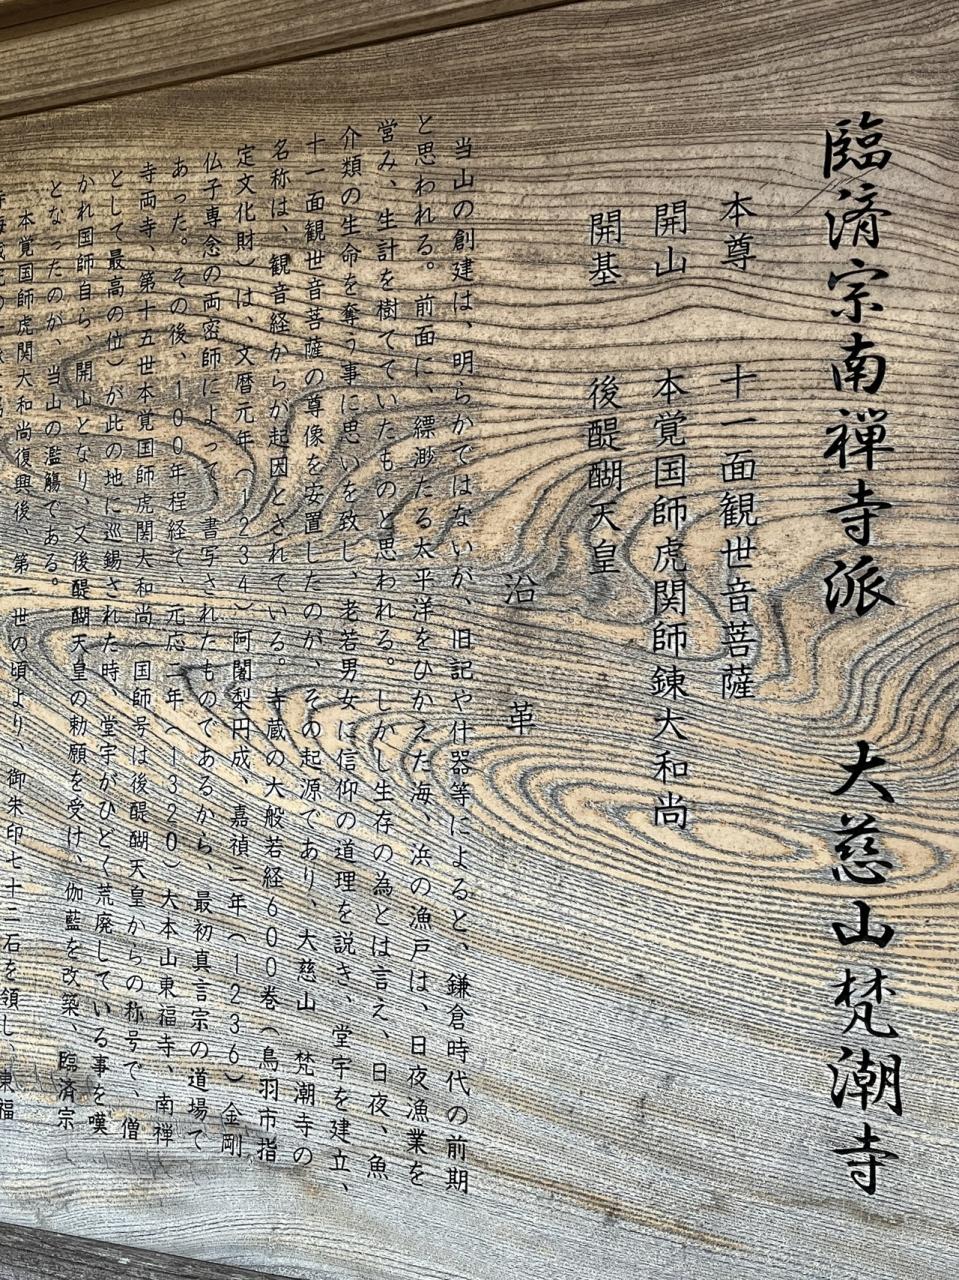 臨済宗南禅寺派　大慈山梵潮寺
本尊　十一面観世音菩薩
開山　本覚国師虎関師錬大和尚
開基　後醍醐天皇
沿革
当山の創建は、明らかではないが、旧記や什器等によると、鎌倉時代の前期
と思われる。前面に、縹渺たる太平洋をひかえた海、浜の漁戸は、日夜漁業を
営み、生計を樹てていたものと思われる。しかし生存の為とは言え、日夜、魚
介類の生命を奪う事に思いを致し、老若男女に信仰の道理を説き、堂宇を建立、
十一面観世音菩薩の尊像を安置したのが、その起源であり、大慈山　梵潮寺の
名称は、観音経からが起因とされている。寺蔵の大般若経600巻（鳥羽市指
定文化財）は、文暦元年（1234）阿闍梨円成、嘉禎二年（1236）金剛
仏子専念の両密師によって、書写されたものであるから、最初真言宗の道場で
あった。その後、100年程経て、元応二年（1320）大本山東福寺、南禅
寺両寺、第十五世本覚国師虎関大和尚（国師号は後醍醐天皇からの称号で、僧
として最高の位）が此の地に巡錫された時、堂宇がひどく荒廃している事を嘆
かれ国師自ら、開山となり、又後醍醐天皇の勅願を受け、伽藍を改築、臨済宗
となったのが、当山の濫觴である。
本覚国師虎関大和尚復興後、第一世の頃より、御朱印七十二石を領し、東福